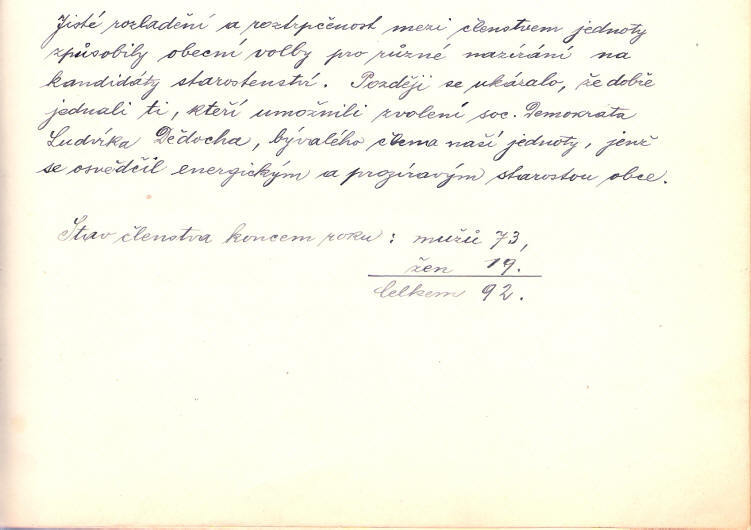 Jisté rozladění a roztrpčenost mezi členstvem jednoty
způsobily obecní volby pro různé nazírání na
kandidáty starostenství. Později se ukázalo, že dobře
jednali ti, kteří umožnili zvolení soc. Demokrata
Ludvíka Dědocha, bývalého člena naší jednoty, jenž
se osvědčil energickým a prozíravým starostou obce.
Stav členstva koncem roku: mužů 73,
žen 19.
Celkem 92.